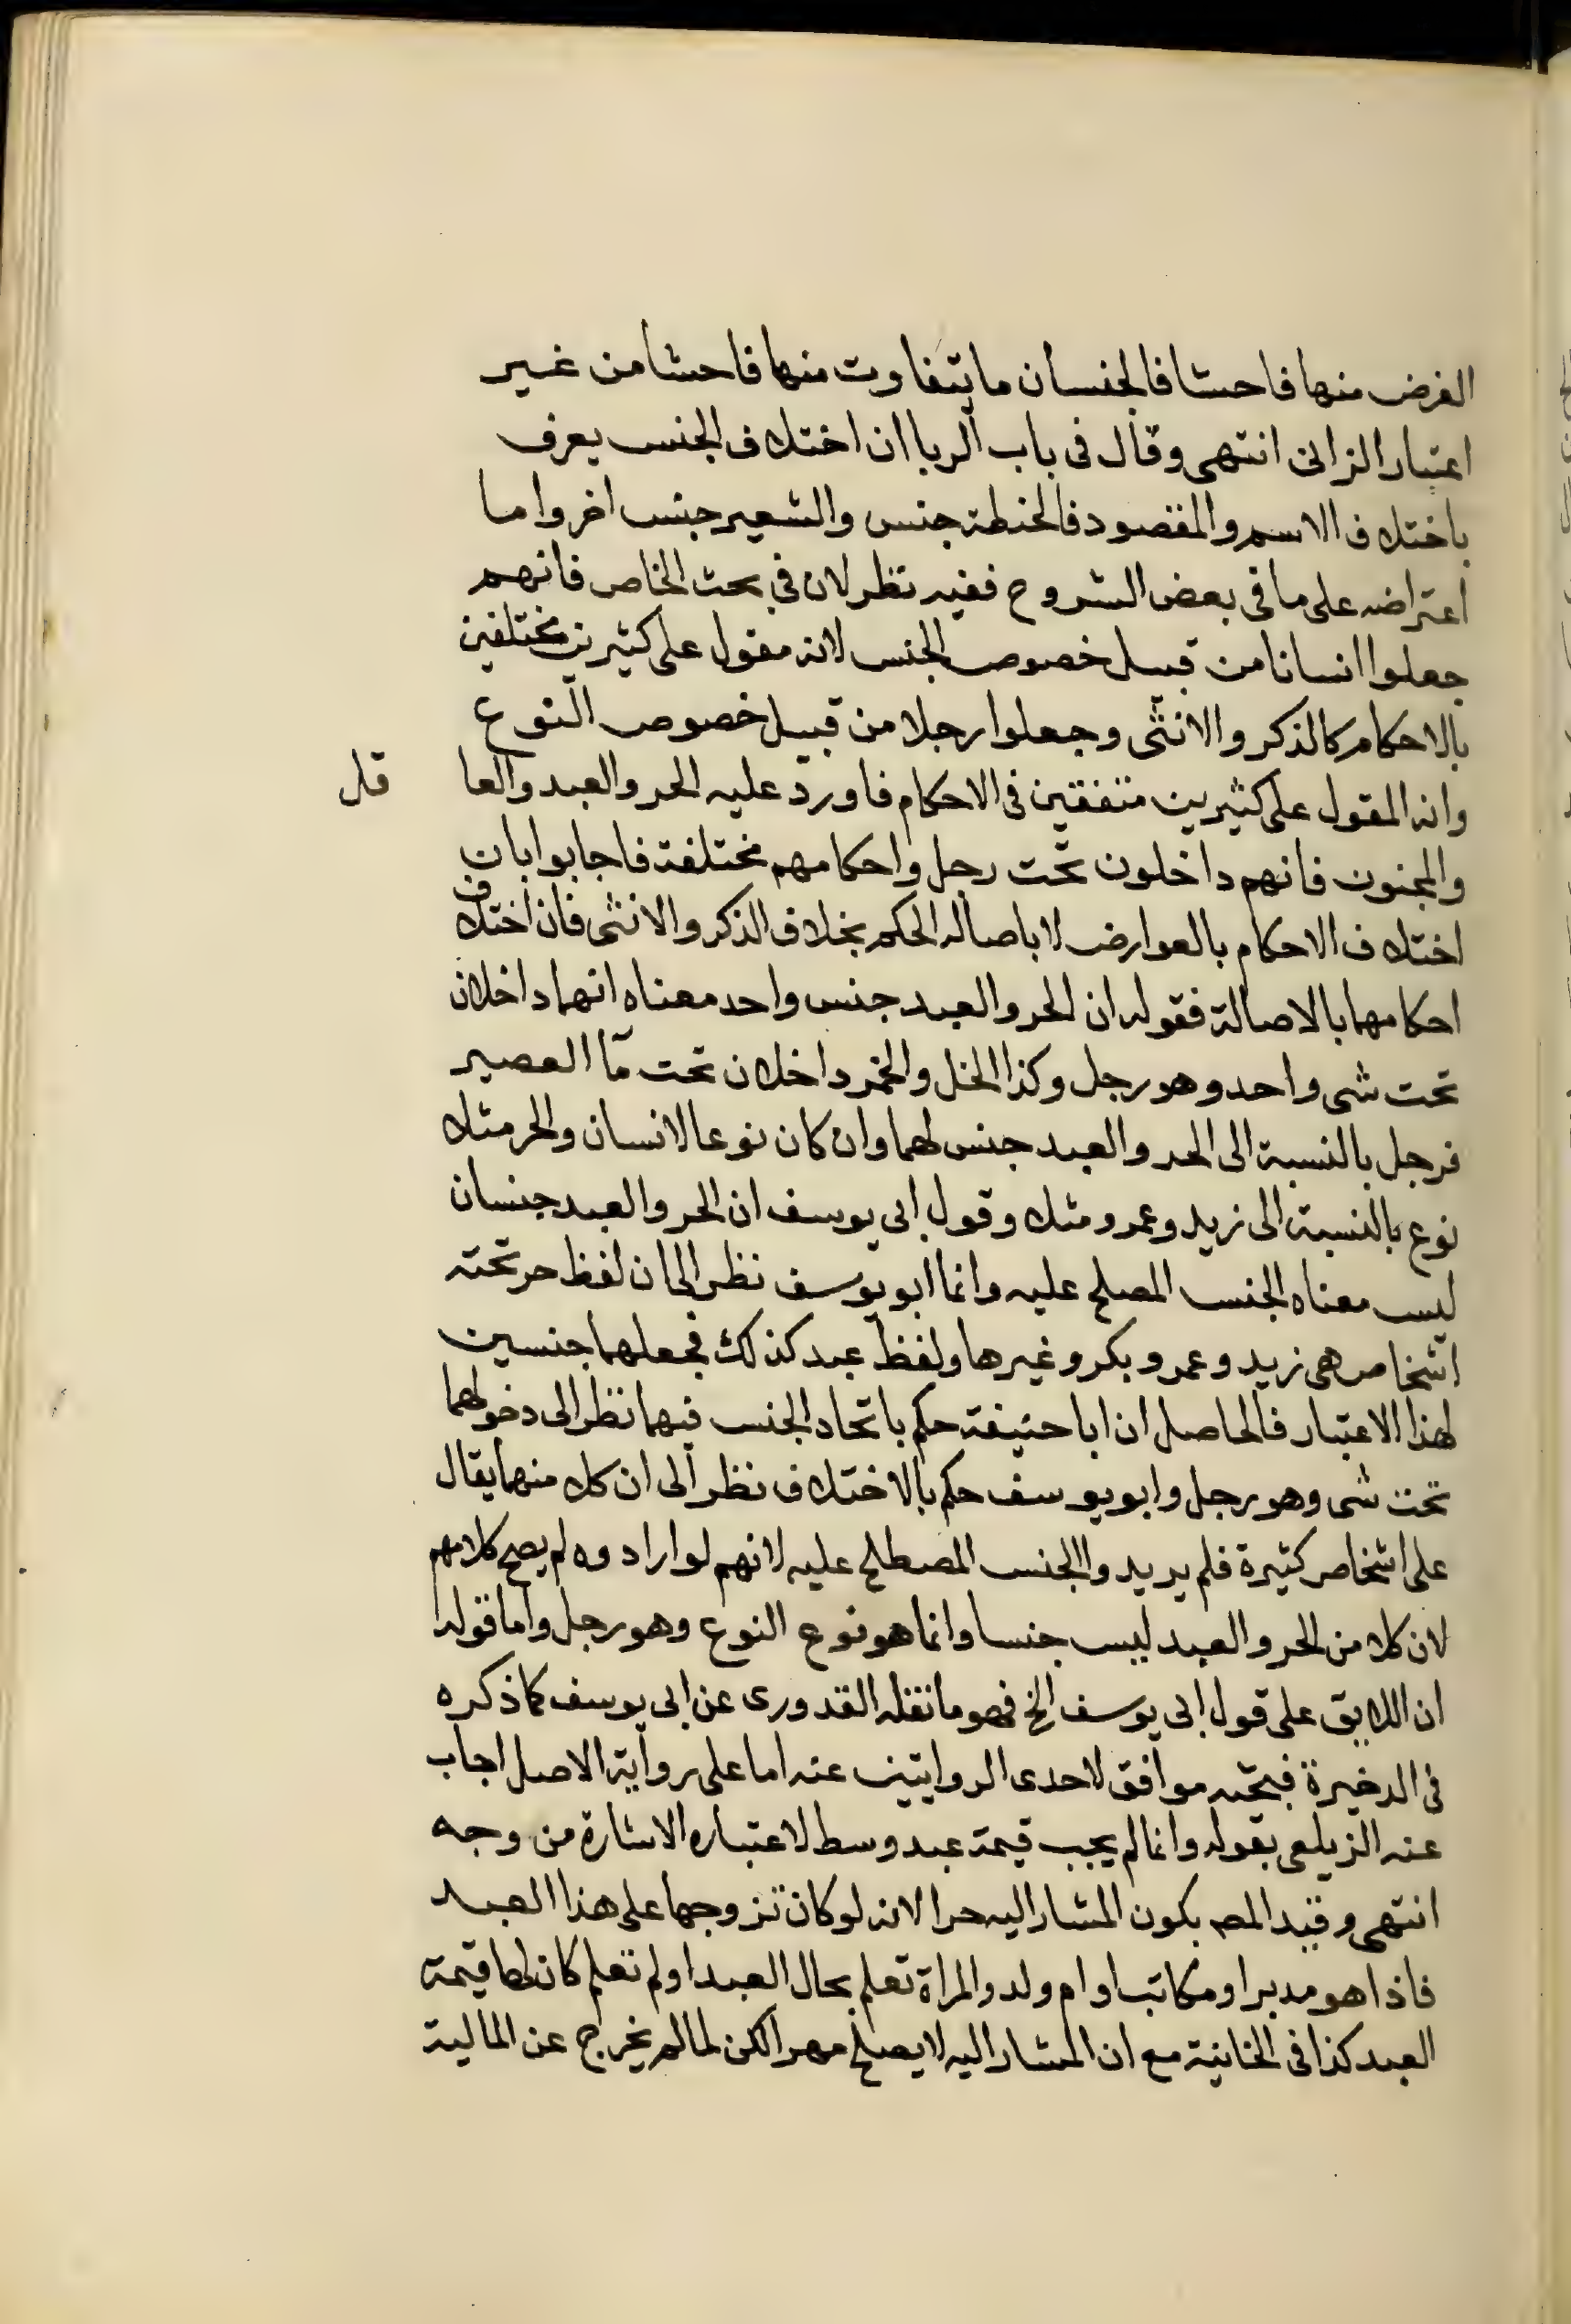 الغرض منها فاحشا فالجنسان ما يتفاوت منها فاحشا من غير
اعتبار الذاتى انتهى وقال فى باب الربا ان اختلاف الجنس يعرف
باختلاف الاسم والمقصود فالحنطة جنس والشعير جنس اخر واما
اعتراضه على ما فى بعض الشروح ففيه نظر لان فى بحث الخاص فانهم
جعلوا انسانا من قبيل خصوص الجنس لانه مقول على كثيرين مختلفين
بالاحكام كالذكر والانثى وجعلوا رجلا من قبيل خصوص النوع
وانه المقول على كثيرين متفقين فى الاحكام فاورد عليه الحر والعبد والعا قل
والمجنون فانهم داخلون تحت رجل واحكامهم مختلفة فاجابوا بان
اختلاف الاحكام بالعوارض لا باصاله الحكم بخلاف الذكر والانثى فان اختلاف
احكامهما بالاصالة فقوله ان الحر والعبد جنس واحد معناه انهما داخلان
تحت شى واحد وهو رجل وكذا الخل والخمر داخلان تحت مآ العصير
فرجل بالنسبة الى الحر والعبد جنس لهما وان كان نوعا لانسان والحر مثلا
نوع بالنسبة الى زيد وعمرو مثلا وقول ابى يوسف ان الحر والعبد جنسان
ليس معناه الجنس المصلح عليه وانما ابو يوسف نظر الى ان لفظ حر تحته
اشخاص هى زيد وعمرو وبكر وغيرها ولفظ عبد كذلك فجعلهما جنسين
لهذا الاعتبار فالحاصل ان ابا حنيفة حكم باتحاد الجنس فيهما نظرا الى دخولهما
تحت شى وهو رجل وابو يوسف حكم بالاختلاف نظرا الى ان كلا منهما يقال
على اشخاص كثيرة فلم يريدوا الجنس المصطلح عليه لانهم لو ارادوه لم يصح كلامهم
لان كلا من الحر والعبد ليس جنسا وانما هو نوع النوع وهو رجل واما قوله
ان اللايق على قول ابى يوسف الخ فهو ما نقله القدورى عن ابى يوسف كما ذكره
فى الدخيرة فبحثه موافق لاحدى الروايتين عنه اما على رواية الاصل اجاب
عنه الزيلعى بقوله وانما لم يجب قيمة عبد وسط لاعتباره الاشارة من وجه
انتهى وقيد المصـ بكون المشار اليه حرا لانه لو كان تزوجها على هذا العبد
فاذا هو مدبر او مكاتب او ام ولد والمراة تعلم بحال العبد او لم تعلم كان لها قيمة
العبد كذا فى الخانية مع ان المشار اليه لا يصلح مهرا لكن لما لم يخرج عن المالية